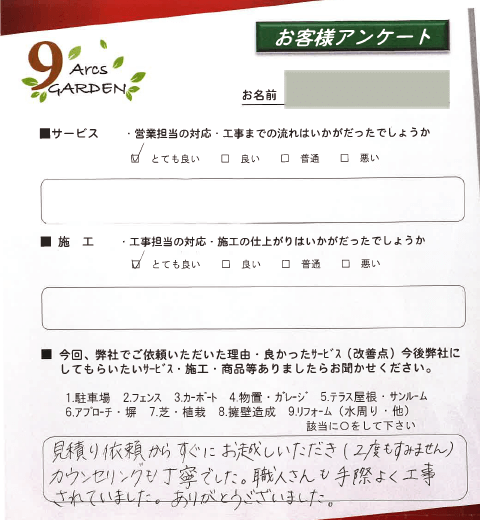 お客様アンケート
9 Arcs GARDEN
お名前
■サービス ・営業担当の対応・工事までの流れはいかがだったでしょうか
☑ とても良い □ 良い □ 普通 □ 悪い
■ 施 工 ・工事担当の対応・施工の仕上がりはいかがだったでしょうか
☑ とても良い □ 良い □ 普通 □ 悪い
■ 今回、弊社でご依頼いただいた理由・良かったｻｰﾋﾞｽ（改善点）今後弊社に
してもらいたいｻｰﾋﾞｽ・施工・商品等ありましたらお聞かせください。
1.駐車場 2.ﾌｪﾝｽ 3.ｶｰﾎﾟｰﾄ 4.物置・ｶﾞﾚｰｼﾞ 5.ﾃﾗｽ屋根・ｻﾝﾙｰﾑ
6.ｱﾌﾟﾛｰﾁ・塀 7.芝・植栽 8.擁壁造成 9.ﾘﾌｫｰﾑ（水周り・他）
該当に○をして下さい
見積り依頼からすぐにお越しいただき（2度もすみません）
カウンセリングも丁寧でした。職人さんも手際よく工事
されていました。ありがとうございました。